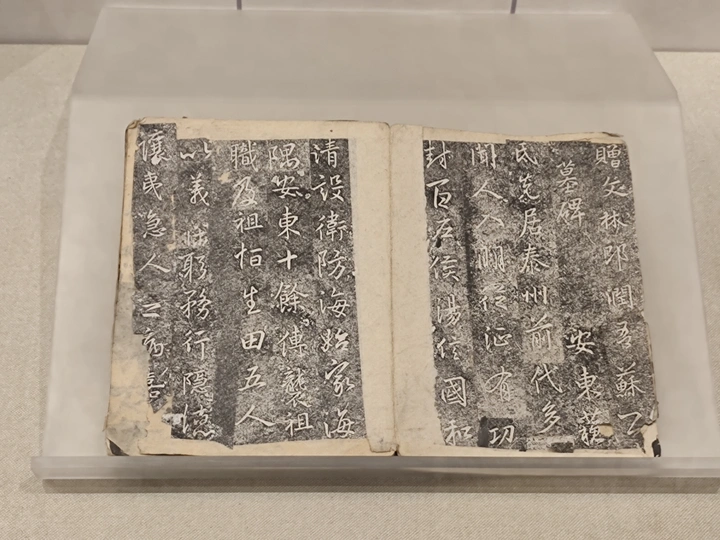 贈文林郎潤吾蘇公
墓碑　安東蘇
氏先居泰州前代多
聞人入明從征有功
封百戶後湯信國和
請設衛防海始家海
隅安東十餘傳襲祖
職及祖栢生田五人
以義務行隱德
讓急人之病喜